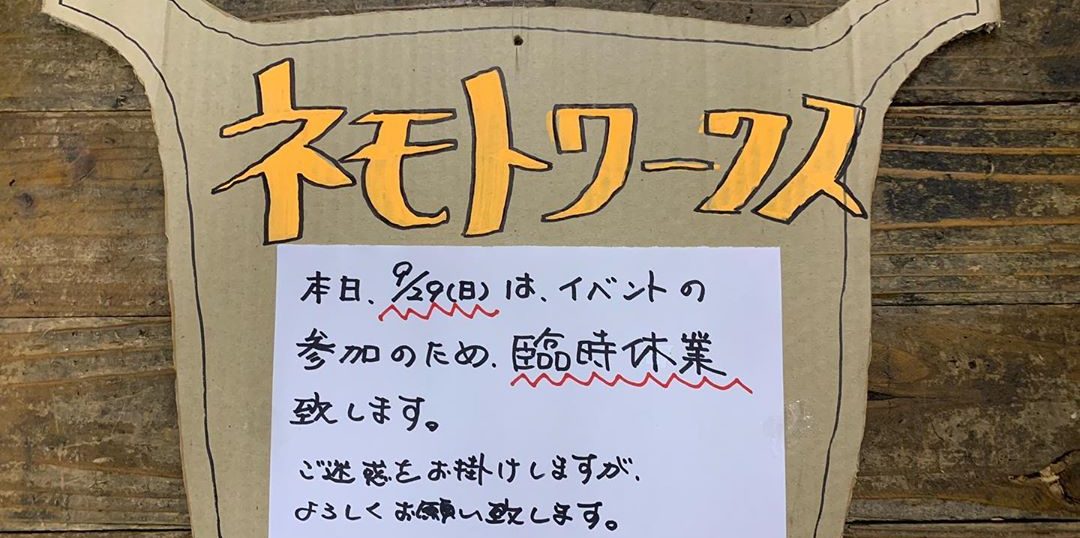 ネモトワークス
本日、9/29(日)は、イベントの
参加のため、臨時休業
致します。
ご迷惑をお掛けしますが、
よろしくお願い致します。